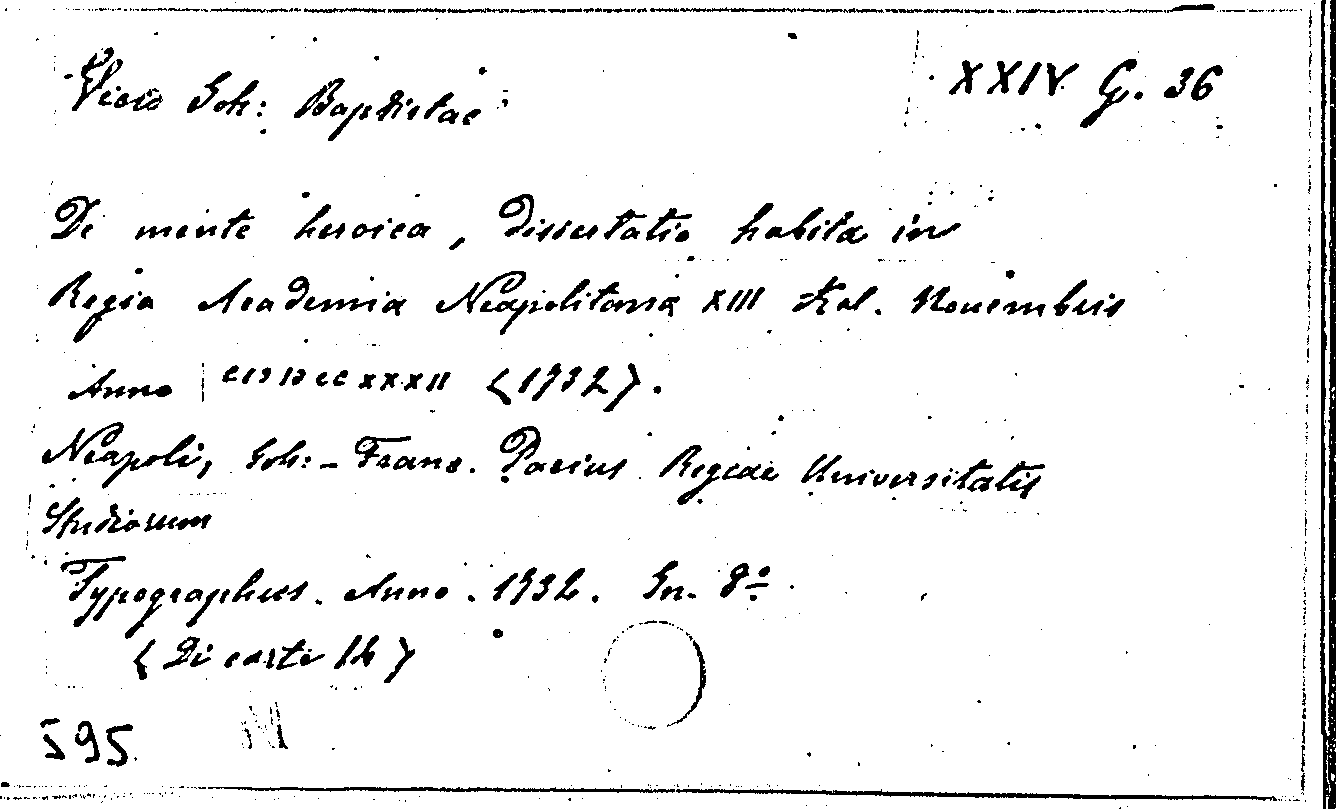 Vicio Joh: Baptistae
XXIV G. 36
De mente heroica, Dissertatio habita in
Regia Academia Neapolitana XIII Kal. Novembris
Anno CIƆIƆCCXXXII (1732).
Neapoli, Joh:- Franc. Pacius Regiae Universitatis
Studiorum
Typographus. Anno. 1732. In. 8º.
(Di carte 14)
595